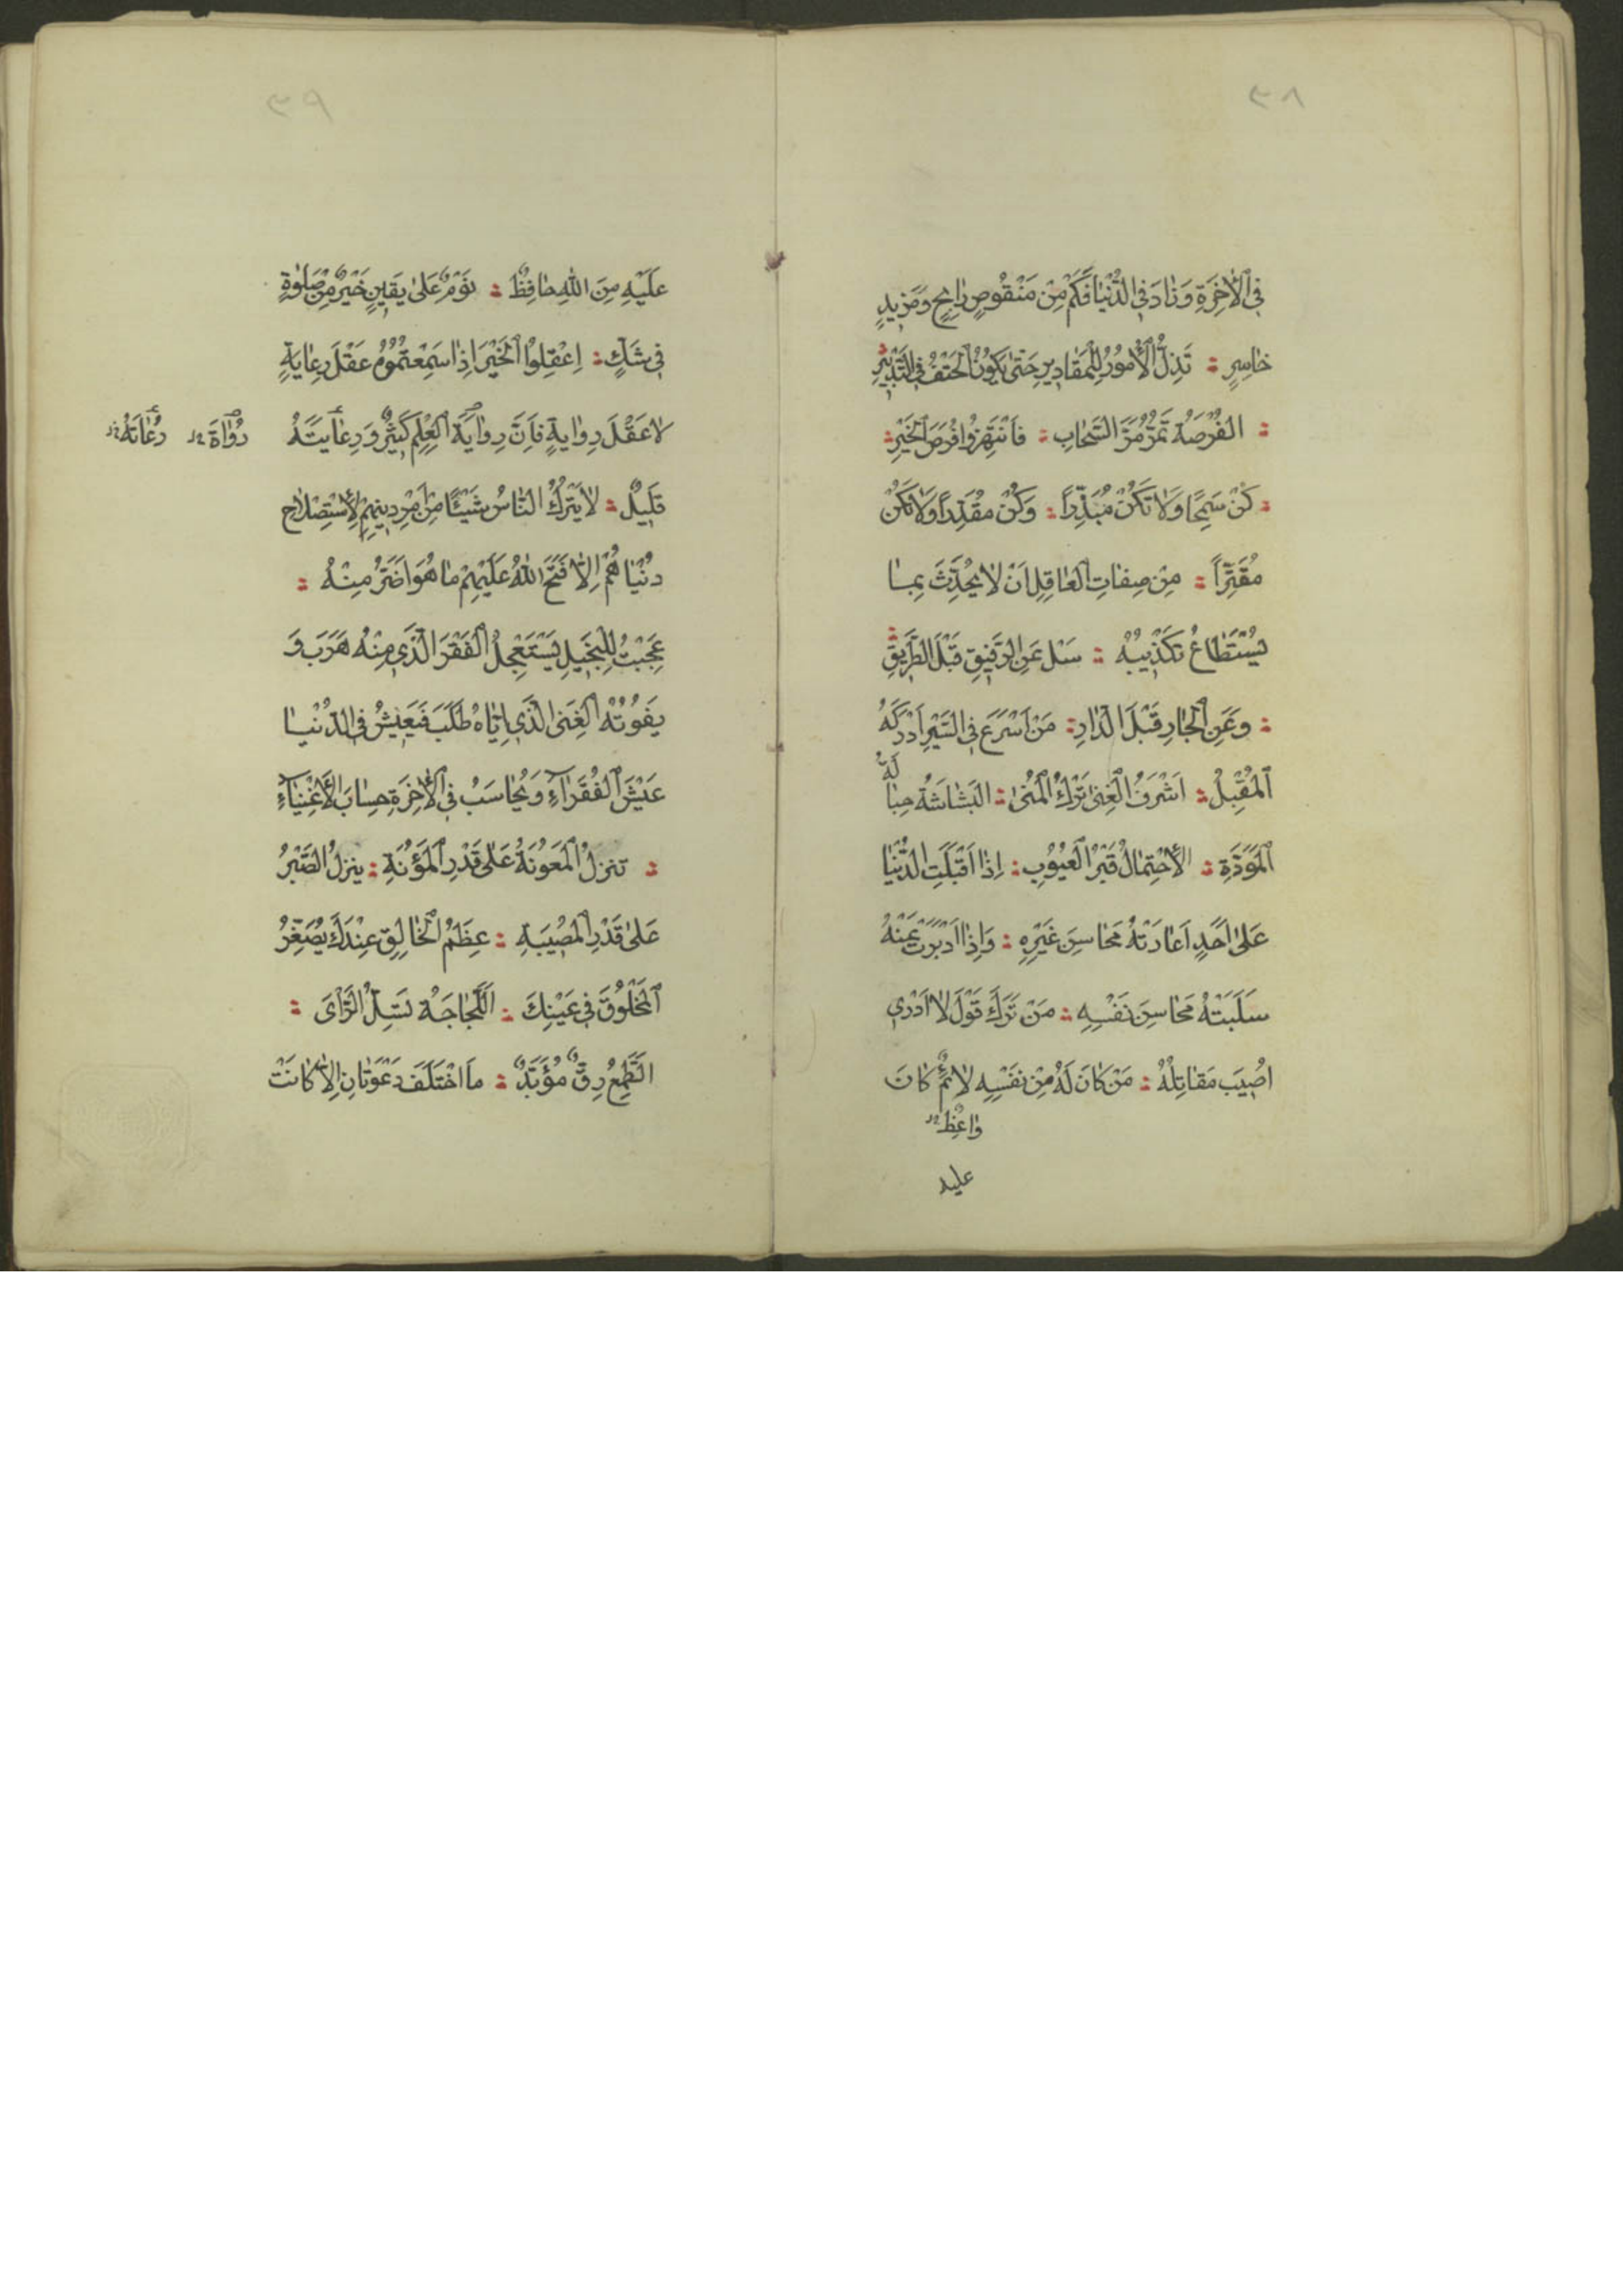 ٣٨
فِي الْآخِرَةِ وَزَادَ فِي الدُّنْيَا فَكَمْ مِنْ مَنْقُوصٍ رَابِحٍ وَمَزِيدٍ
خَاسِرٍ : تَذِلُّ الْأُمُورُ لِلْمَقَادِيرِ حَتّٰى يَكُونَ الْحَتْفُ فِي التَّدْبِيرِ
: الفُرْصَةُ تَمُرُّ مَرَّ السَّحَابِ : فَانْتَهِزُوا فُرَصَ الْخَيْرِ :
: كُنْ سَمِحًا وَلَا تَكُنْ مُبَذِّرًا : وَكُنْ مُقَدِّرًا وَلَا تَكُنْ
مُقَتِّرًا : مِنْ صِفَاتِ الْعَاقِلِ اَنْ لَا يُحَدِّثَ بِمَا
يُسْتَطَاعُ تَكْذِيبُهُ : سَلْ عَنِ الرَّفِيقِ قَبْلَ الطَّرِيقِ
: وَعَنِ الْجَارِ قَبْلَ الدَّارِ : مَنْ اَسْرَعَ فِي السَّيْرِ اَدْرَكَهُ
الْمُقْبِلُ : اَشْرَفُ الْغِنٰى تَرْكُ الْمُنٰى : البَشَاشَةُ حِبَالَةُ
الْمَوَدَّةِ : الْاِحْتِمَالُ قَبْرُ الْعُيُوبِ : اِذَا اَقْبَلَتِ الدُّنْيَا
عَلٰى اَحَدٍ اَعَارَتْهُ مَحَاسِنَ غَيْرِهِ : وَاِذَا اَدْبَرَتْ عَنْهُ
سَلَبَتْهُ مَحَاسِنَ نَفْسِهِ : مَنْ تَرَكَ قَوْلَ لَا اَدْرِي
اُصِيبَ مَقَاتِلُهُ : مَنْ كَانَ لَهُ مِنْ نَفْسِهِ لَائِمٌ كَانَ
وَاعِظٌ
عليه
٣٩
عَلَيْهِ مِنَ اللهِ حَافِظٌ : نَوْمٌ عَلٰى يَقِينٍ خَيْرٌ مِنْ صَلٰوةٍ
فِي شَكٍّ : اِعْقِلُوا الْخَيْرَ اِذَا سَمِعْتُمُوهُ عَقْلَ رِعَايَةٍ
لَا عَقْلَ رِوَايَةٍ فَاِنَّ رِوَايَةَ الْعِلْمِ كَثِيرٌ وَرِعَايَتَهُ
رُوَاةَ رُعَاتَهُ
قَلِيلٌ : لَا يَتْرُكُ النَّاسُ شَيْئًا مِنْ اَمْرِ دِينِهِمْ لِاسْتِصْلَاحِ
دُنْيَاهُمْ اِلَّا فَتَحَ اللهُ عَلَيْهِمْ مَا هُوَ اَضَرُّ مِنْهُ :
عَجِبْتُ لِلْبَخِيلِ يَسْتَعْجِلُ الْفَقْرَ الَّذِي مِنْهُ هَرَبَ وَ
يَفُوتُهُ الْغِنٰى الَّذِي اِيَّاهُ طَلَبَ فَيَعِيشُ فِي الدُّنْيَا
عَيْشَ الْفُقَرَاءِ وَيُحَاسَبُ فِي الْآخِرَةِ حِسَابَ الْاَغْنِيَاءِ
: تَنْزِلُ الْمَعُونَةُ عَلٰى قَدْرِ الْمَؤُنَةِ : يَنْزِلُ الصَّبْرُ
عَلٰى قَدْرِ الْمُصِيبَةِ : عِظَمُ الْخَالِقِ عِنْدَكَ يُصَغِّرُ
الْمَخْلُوقَ فِي عَيْنِكَ : اَللَّجَاجَةُ تَسُلُّ الرَّأْيَ :
الطَّمَعُ رِقٌّ مُؤَبَّدٌ : مَا اخْتَلَفَ دَعْوَتَانِ اِلَّا كَانَتْ